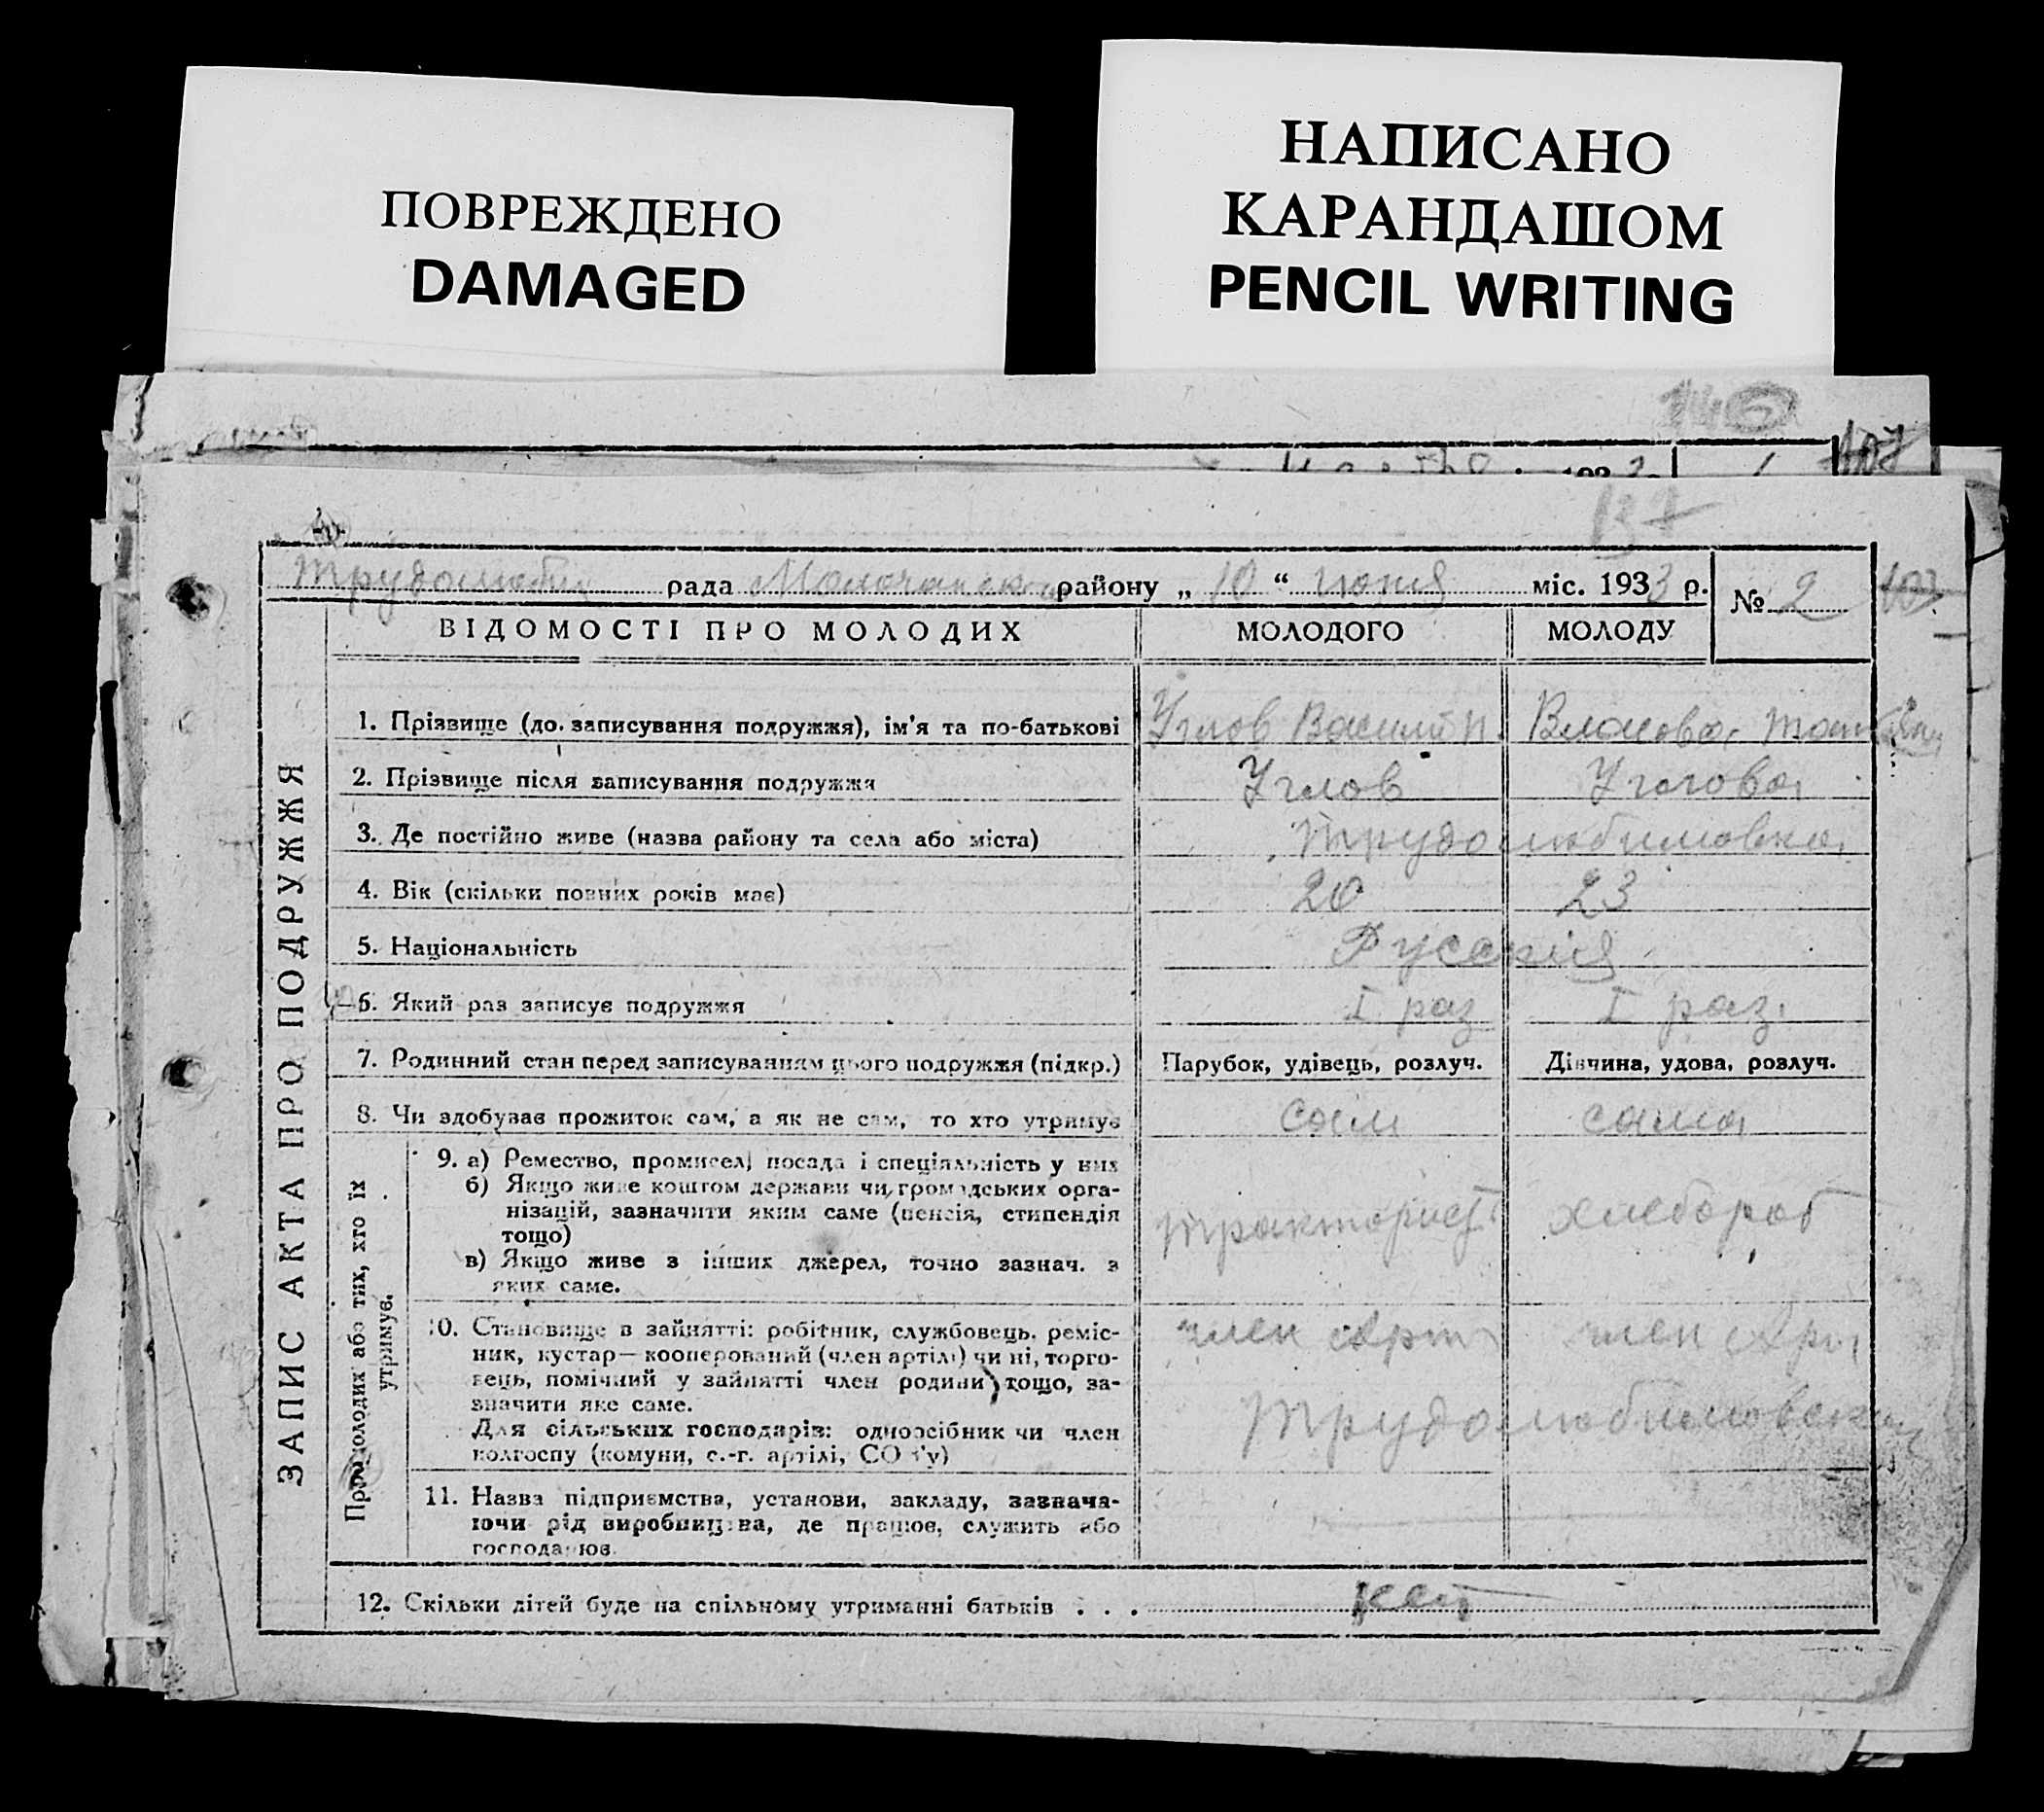 ПОВРЕЖДЕНО
DAMAGED
НАПИСАНО
КАРАНДАШОМ
PENCIL WRITING
146
107
137
рада Молочанск району „ 10 “ июня міс. 1933 р. № 2
ВІДОМОСТІ ПРО МОЛОДИХ МОЛОДОГО МОЛОДУ
ЗАПИС АКТА ПРО ПОДРУЖЖЯ
1. Прізвище (до записування подружжя), ім'я та по-батькові Углов Василий П. Власова
2. Прізвище після записування подружжя Углов Углова
3. Де постійно живе (назва району та села або міста) Трудолюбимовка
4. Вік (скільки повних років має) 20 23
5. Національність
6. Який раз записує подружжя I раз I раз.
7. Родинний стан перед записуванням цього подружжя (підкр.) Парубок, удівець, розлуч. Дівчина, удова, розлуч.
8. Чи здобував прожиток сам, а як не сам, то хто утримує сам сама
Про молодих або тих, хто їх утримує.
9. а) Ремество, промисел, посада і спеціальність у них
б) Якщо живе коштом держави чи громадських орга-
нізацій, зазначити яким саме (пенсія, стипендія
тощо)
тракторист хлебороб
в) Якщо живе з інших джерел, точно зазнач. з
яких саме.
10. Становище в зайнятті: робітник, службовець, реміс-
ник, кустар—кооперований (член артілі) чи ні, торго-
вець, помічний у зайнятті член родини тощо, за-
значити яке саме.
член Арт член Арт
Для сільських господарів: одноосібник чи член
колгоспу (комуни, с.-г. артілі, СОЗ'у)
11. Назва підприємства, установи, закладу, зазнача-
ючи рід виробництва, де працює, служить або
господарює.
12. Скільки дітей буде на спільному утриманні батьків . . . нет